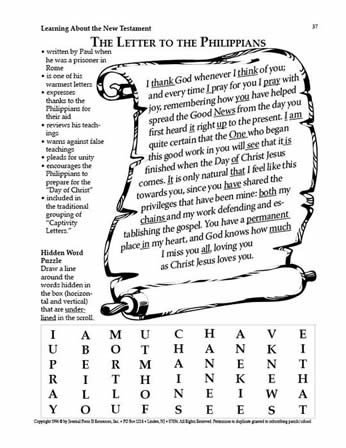 Learning About the New Testament
37
THE LETTER TO THE PHILIPPIANS
• written by Paul when
he was a prisoner in
Rome
• is one of his
warmest letters
• expresses
thanks to the
Philippians for
their aid
• reviews his teach-
ings
• warns against false
teachings
• pleads for unity
• encourages the
Philippians to
prepare for the
"Day of Christ"
• included in
the traditional
grouping of
"Captivity
Letters."
Hidden Word
Puzzle
Draw a line
around the
words hidden in
the box (horizon-
tal and vertical)
that are under-
lined in the scroll.
I thank God whenever I think of you;
and every time I pray for you I pray with
joy, remembering how you have helped
spread the Good News from the day you
first heard it right up to the present. I am
quite certain that the One who began
this good work in you will see that it is
finished when the Day of Christ Jesus
comes. It is only natural that I feel like this
towards you, since you have shared the
privileges that have been mine: both my
chains and my work defending and es-
tablishing the gospel. You have a permanent
place in my heart, and God knows how much
I miss you all, loving you
as Christ Jesus loves you.
I A M U C H A V E
U B O T H A N K I
P E R M A N E N T
R I T H I N K E H
A L L O N E I W A
Y O U F S E E S T
Copyright 1996 © by Journal From D Resources, Inc., • PO Box 1224 • Linden, NJ • 07036. All Rights Reserved. Permission to duplicate granted to subscribing parish/school